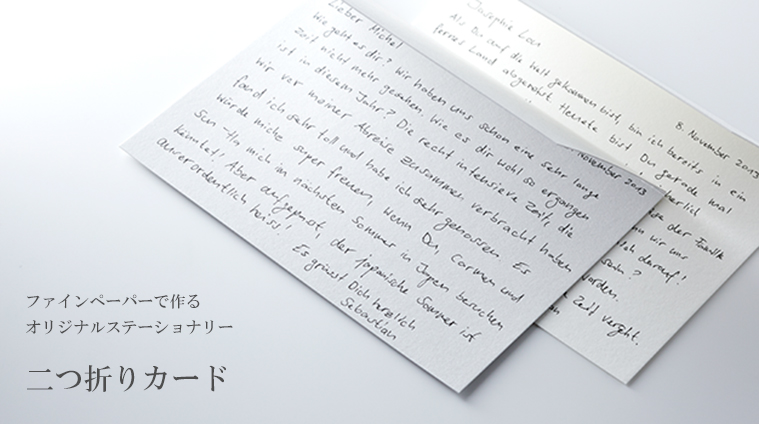 Lieber Michel
Wie geht es dir? Wir haben uns schon eine sehr lange
Zeit nicht mehr gesehen. Wie es dir wohl so ergangen
ist in diesem Jahr? Die recht intensieve Zeit, die
wir vor meiner Abreise zusammen verbracht haben
fand ich sehr toll und habe ich sehr genossen. Es
würde miche super freuen, wenn Du, Carmen und
mich im nächsten Sommer in Japan besuchen
könntet! Aber aufgepasst, der japanische Sommer ist
ausserordentlich heiss!
Es grüsst Dich herzlich
Sebastian
november 2013
8. November 2013
Als Du auf die Welt gekommen bist, bin ich bereits in ein
fernes Land abgereist. Heute bist Du gerade mal
der Familie
wir uns
darauf!
Zeit vergeht.
ファインペーパーで作る
オリジナルステーショナリー
二つ折りカード